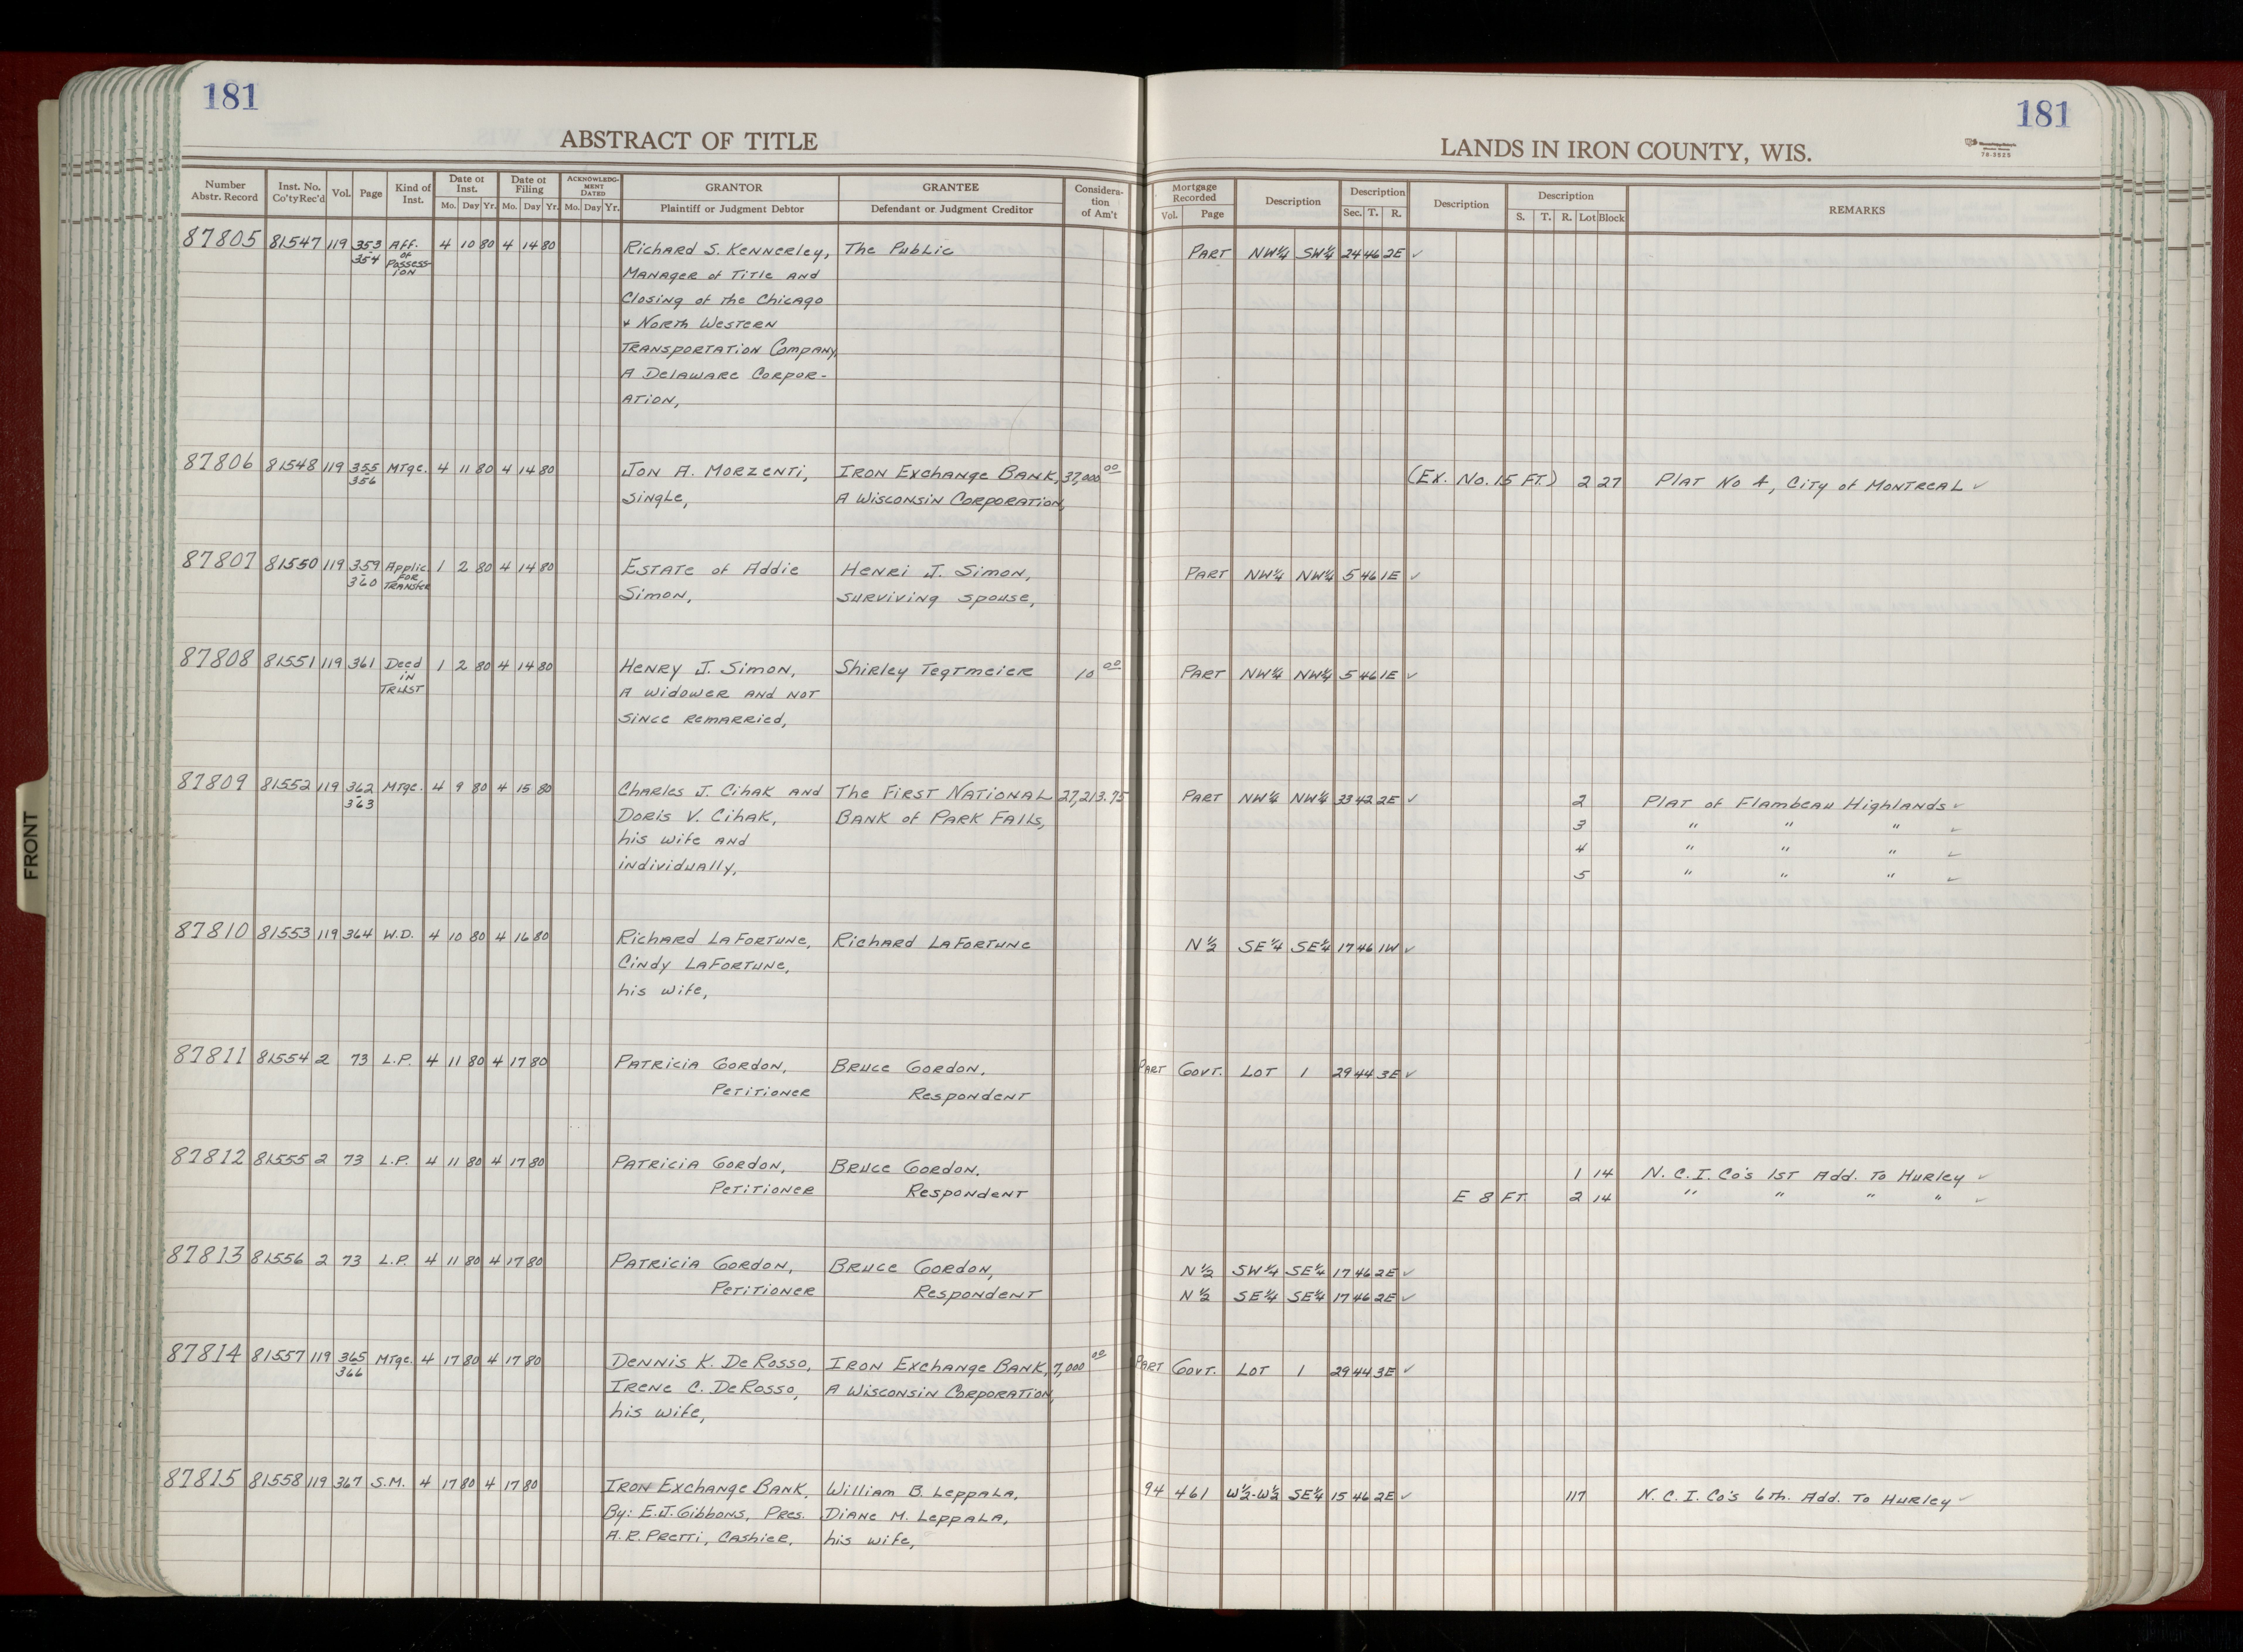 181
181
ABSTRACT OF TITLE
LANDS IN IRON COUNTY, WIS.
78-3525
Number Abstr. Record
Inst. No. Co'ty Rec'd
Vol.
Page
Kind of Inst.
Date of Inst.
Mo. Day Yr.
Date of Filing
Mo. Day Yr.
ACKNOWLEDGMENT DATED
Mo. Day Yr.
GRANTOR
Plaintiff or Judgment Debtor
GRANTEE
Defendant or Judgment Creditor
Consideration of Am't
Mortgage Recorded
Vol. Page
Description
Description
Sec. T. R.
Description
Description
S. T. R. Lot Block
REMARKS
87805 81547 119 353 Aff. 4 10 80 4 14 80 Richard S. Kennerley, The Public PART NW¼ SW¼ 24 46 2E ✓
354 of Possession Manager of Title and
Closing of the Chicago
+ North Western
Transportation Company,
A Delaware Corpor-
ation,
87806 81548 119 355 Mtge. 4 11 80 4 14 80 Jon A. Morzenti, Iron Exchange Bank, 37,000 00 (Ex. No. 15 FT.) 2 27 Plat No 4, City of Montreal ✓
356 Single, A Wisconsin Corporation,
87807 81550 119 359 Applic. 1 2 80 4 14 80 Estate of Addie Henri J. Simon, PART NW¼ NW¼ 5 46 1E ✓
360 For Transfer Simon, surviving spouse,
87808 81551 119 361 Deed 1 2 80 4 14 80 Henry J. Simon, Shirley Tegtmeier 10 00 PART NW¼ NW¼ 5 46 1E ✓
in Trust A widower and not
since remarried,
87809 81552 119 362 Mtge. 4 9 80 4 15 80 Charles J. Cihak and The First National 27,213.75 PART NW¼ NW¼ 33 42 2E ✓ 2 Plat of Flambeau Highlands ✓
363 Doris V. Cihak, Bank of Park Falls, 3 " " " ✓
his wife and 4 " " " ✓
individually, 5 " " " ✓
87810 81553 119 364 W.D. 4 10 80 4 16 80 Richard LaFortune, Richard LaFortune N½ SE¼ SE¼ 17 46 1W ✓
Cindy LaFortune,
his wife,
87811 81554 2 73 L.P. 4 11 80 4 17 80 Patricia Gordon, Bruce Gordon, PART Govt. LOT 1 29 44 3E ✓
Petitioner Respondent
87812 81555 2 73 L.P. 4 11 80 4 17 80 Patricia Gordon, Bruce Gordon, 1 14 N.C.I. Co's 1st Add. To Hurley ✓
Petitioner Respondent E 8 FT. 2 14 " " " " ✓
87813 81556 2 73 L.P. 4 11 80 4 17 80 Patricia Gordon, Bruce Gordon, N½ SW¼ SE¼ 17 46 2E ✓
Petitioner Respondent N½ SE¼ SE¼ 17 46 2E ✓
87814 81557 119 365 Mtge. 4 17 80 4 17 80 Dennis K. DeRosso, Iron Exchange Bank, 7,000 00 PART Govt. LOT 1 29 44 3E ✓
366 Irene C. DeRosso, A Wisconsin Corporation,
his wife,
87815 81558 119 367 S.M. 4 17 80 4 17 80 Iron Exchange Bank, William B. Leppala, 94 461 W½-W½ SE¼ 15 46 2E ✓ 117 N.C.I. Co's 6th. Add. To Hurley ✓
By: E.J. Gibbons, Pres. Diane M. Leppala,
A.R. Pretti, Cashier, his wife,
FRONT